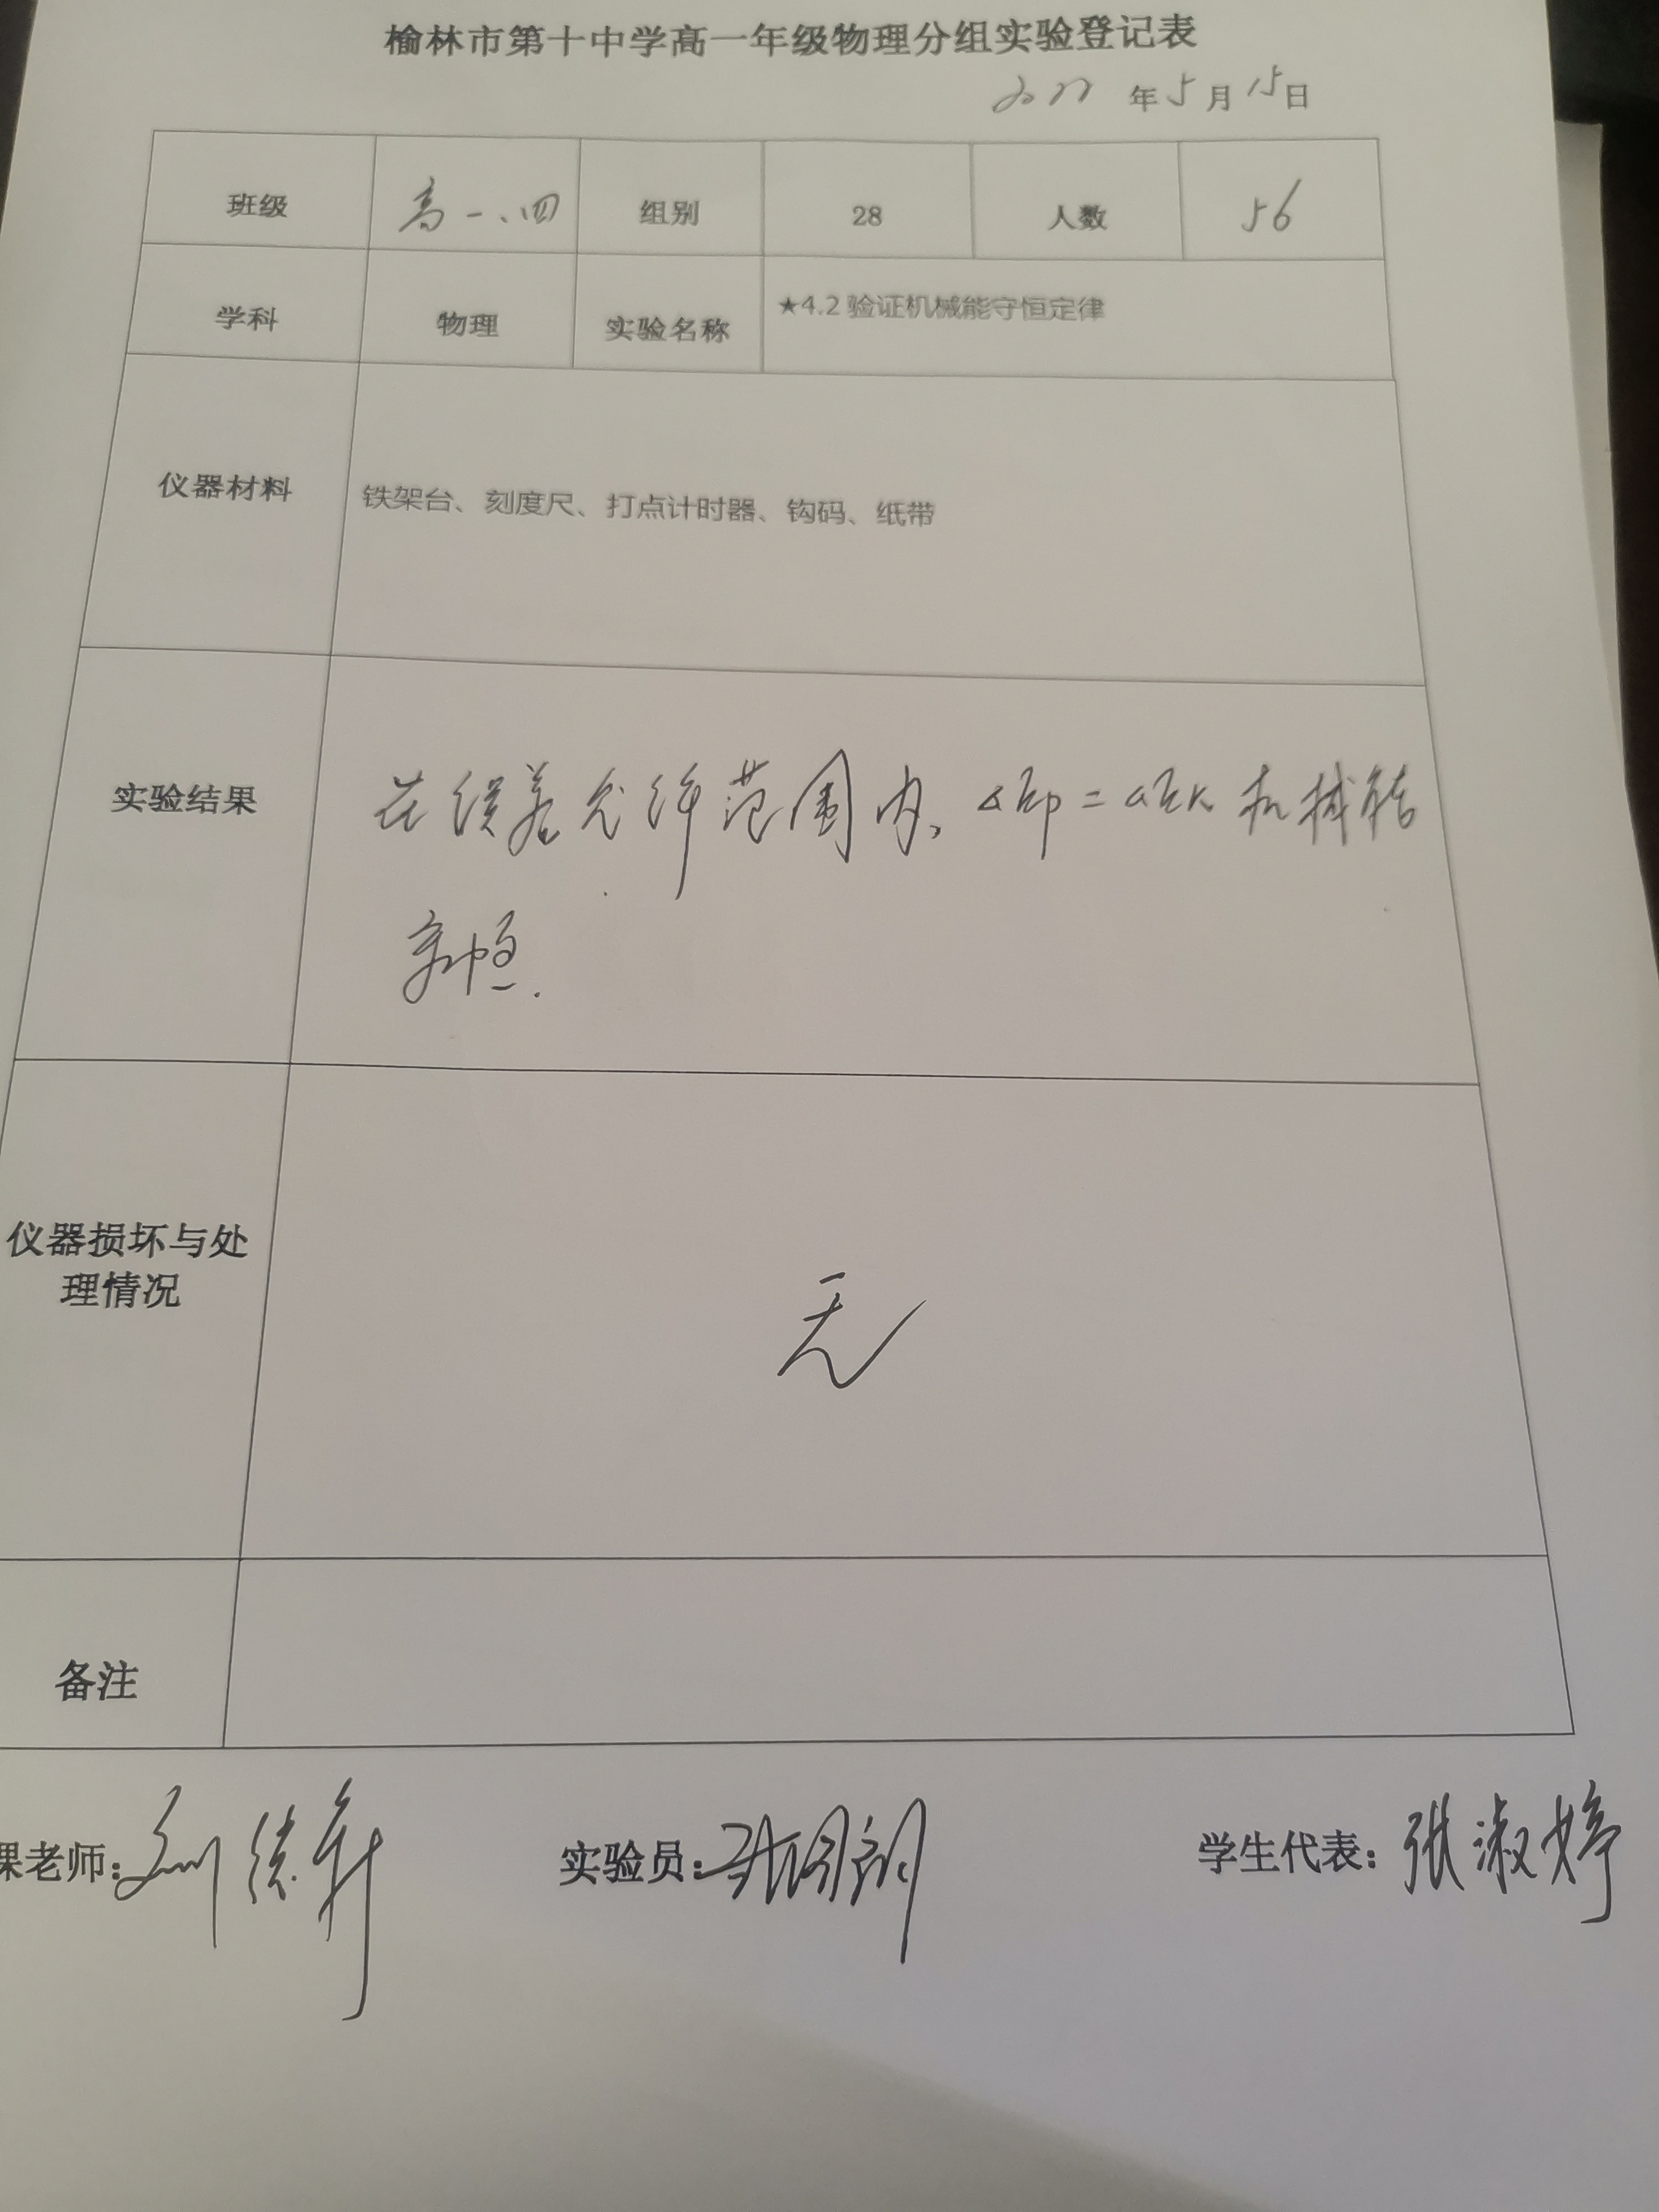 榆林市第十中学高一年级物理分组实验登记表
2022 年 5 月 15 日
班级 高一、四 组别 28 人数 56
学科 物理 实验名称 ★4.2 验证机械能守恒定律
仪器材料 铁架台、刻度尺、打点计时器、钩码、纸带
实验结果 在误差允许范围内，ΔEp=ΔEk 机械能
守恒.
仪器损坏与处
理情况
无
备注
课老师： 实验员： 学生代表：张淑婷